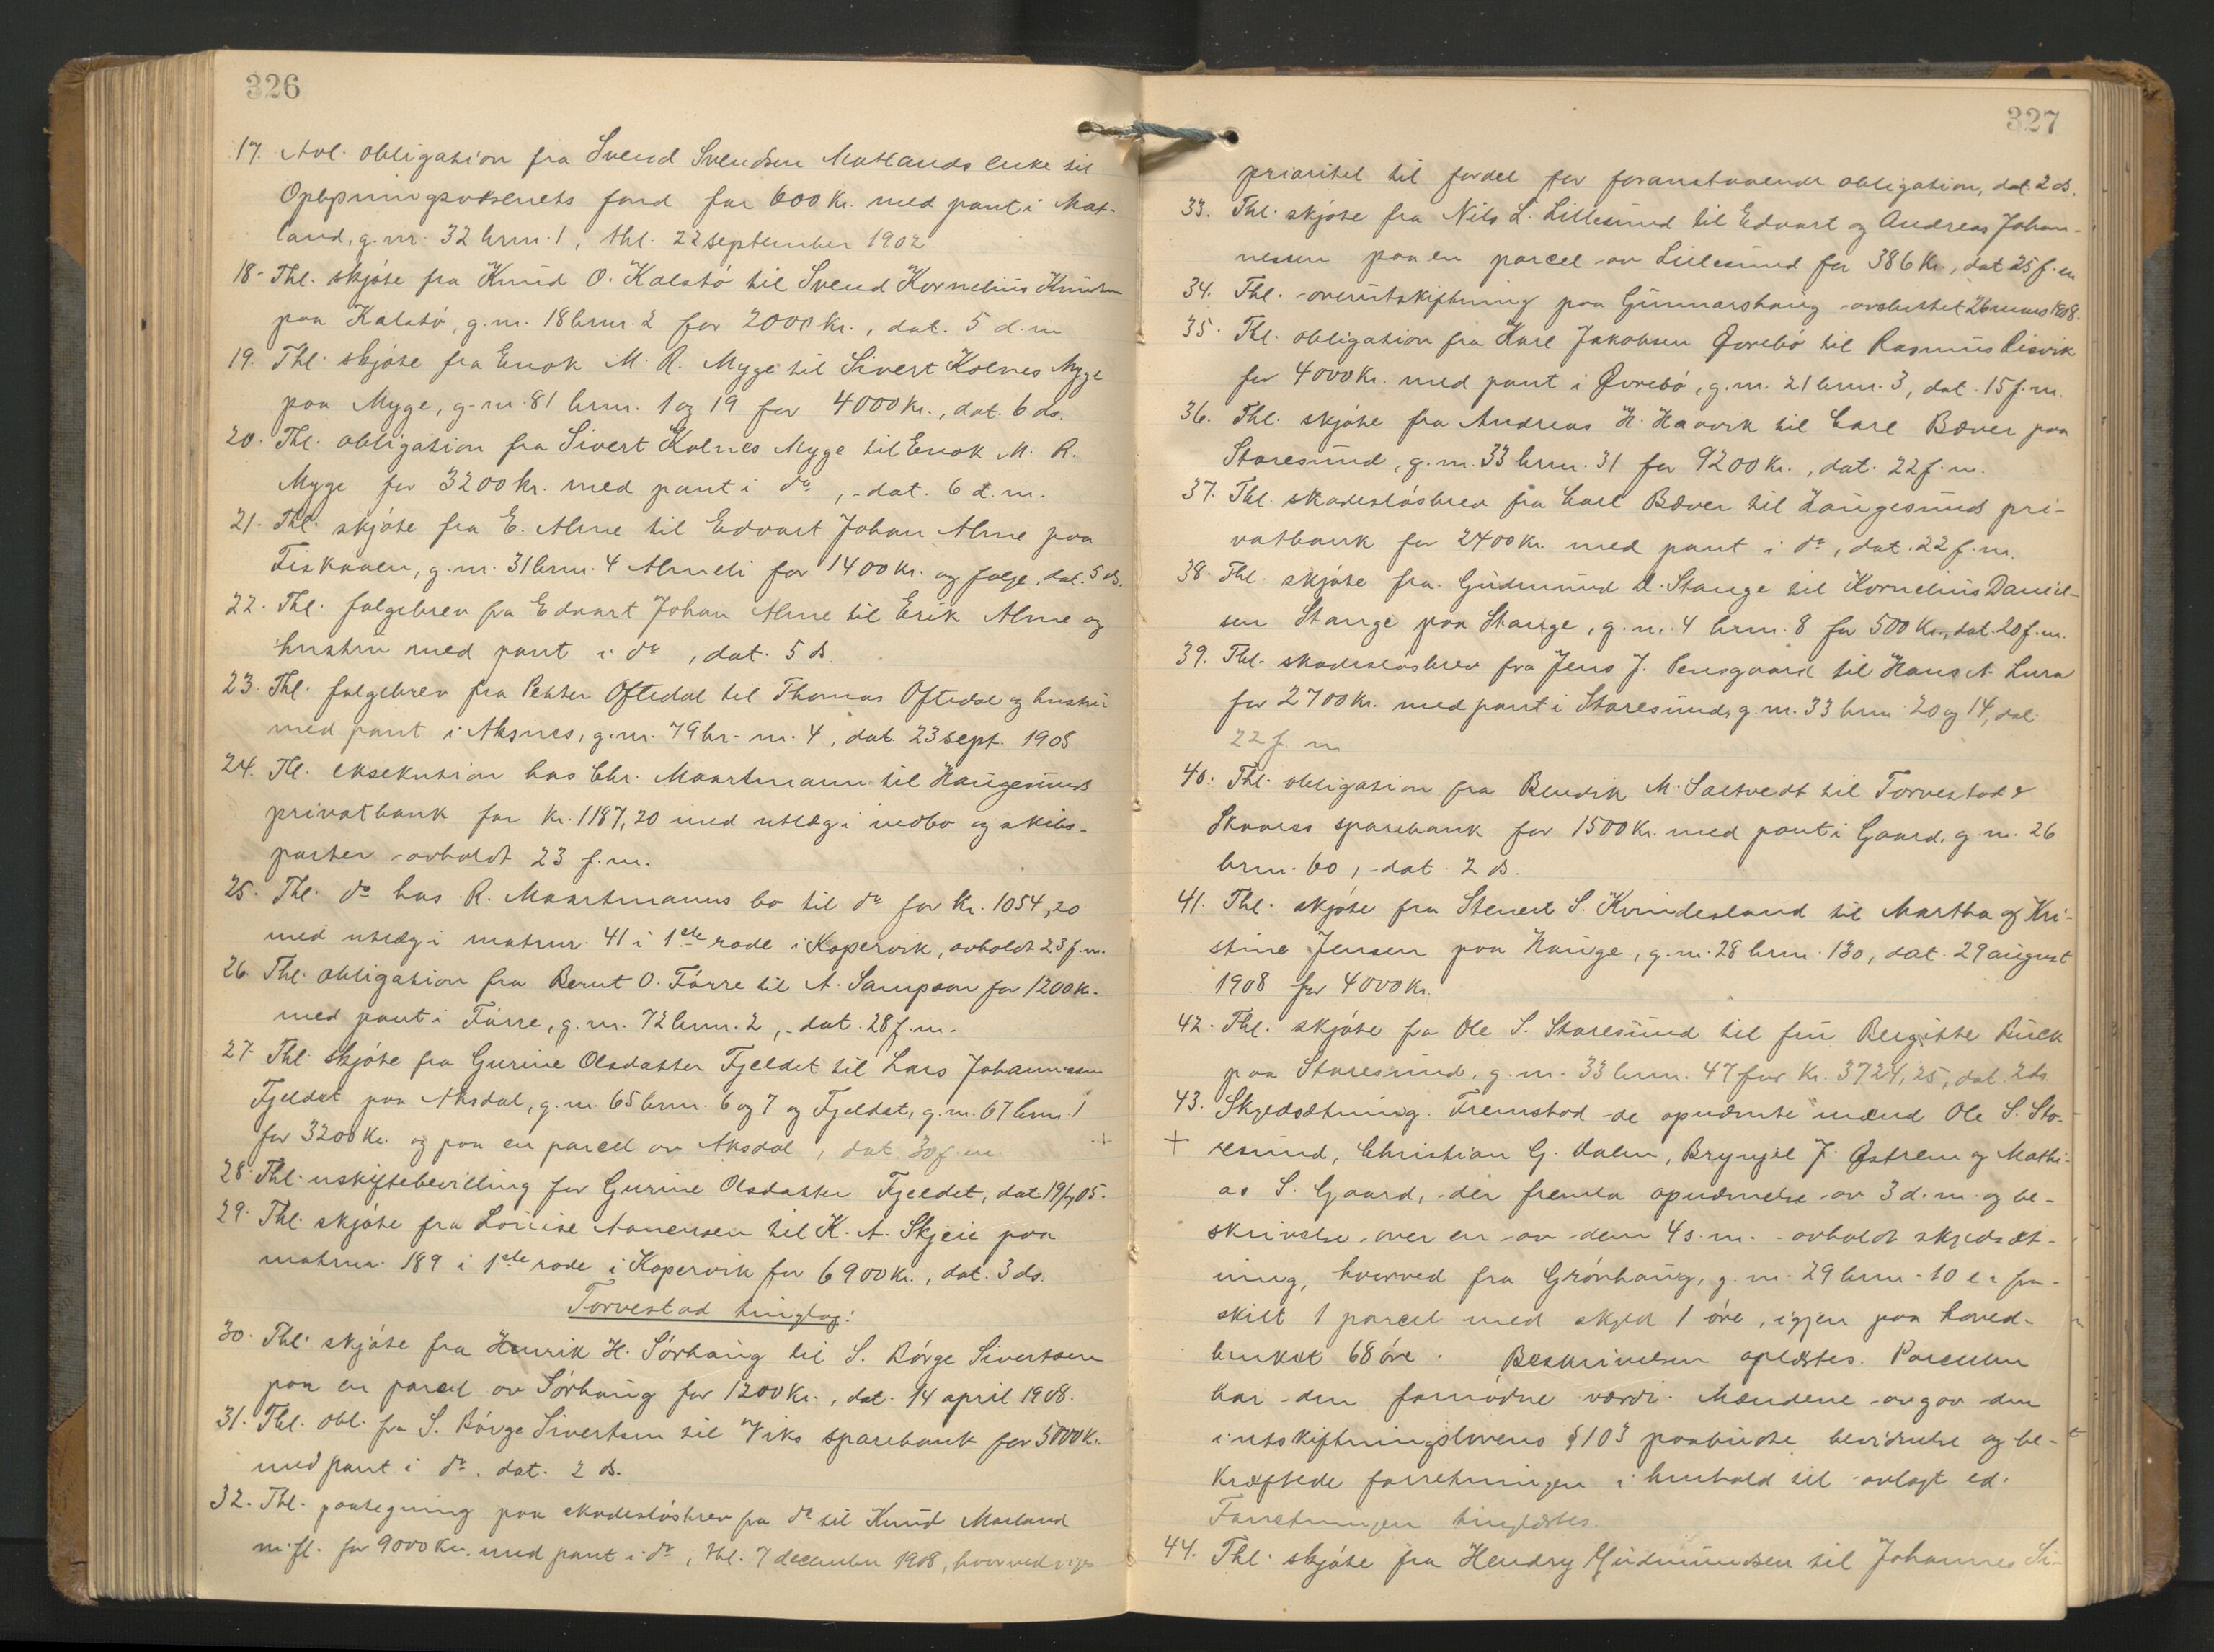 326
17. Avl. obligation fra Svend Svendsen Matlands enke til
Oplysningsvæsenets fond for 600 Kr. med pant i Mat-
land, g.nr. 32 brnr. 1, thl. 22 september 1902
18. Thl. skjøte fra Knud O. Kalstø til Svend Kornelius Knutsen
paa Kalstø, g.nr. 18 brnr. 2 for 2000 Kr., dat. 5 d.m
19. Thl. skjøte fra Enok M. R. Myge til Sivert Kolnes Myge
paa Myge, g.nr. 81 brnr. 1 og 19 for 4000 Kr., dat. 6 ds.
20. Thl. obligation fra Sivert Kolnes Myge til Enok M. R.
Myge for 3200 kr. med pant i do, dat. 6 d.m.
21. Thl. skjøte fra E. Alme til Edvart Johan Alme paa
Fiskaaen, g.nr. 31 brnr. 4 Almeli for 1400 Kr. og følge, dat. 5 ds.
22. Thl. følgebrev fra Edvart Johan Alme til Erik Alme og
hustru med pant i do, dat. 5 ds.
23. Thl. følgebrev fra Petter Oftedal til Thomas Oftedal og hustru
med pant i Aksnes, g.nr. 79 br.nr. 4, dat. 23 sept. 1908
24. Tl. eksekution hos Chr. Maartmann til Haugesunds
privatbank for Kr. 1187,20 med utlæg i indbo og skibs-
parter avholdt 23 f.m.
25. Thl. do hos R. Maartmanns bo til do for Kr. 1054,20
med utlæg i matrnr. 41 i 1ste rode i Kopervik, avholdt 23 f.m.
26. Thl. obligation fra Bernt O. Førre til A. Sampson for 1200 Kr.
med pant i Førre, g.nr. 72 brnr. 2, dat. 28 f.m.
27. Thl. skjøte fra Gurine Olsdatter Fjeldet til Lars Johannessen
Fjeldet paa Aksdal, g.nr. 65 brnr. 6 og 7 og Fjeldet, g.nr. 67 brnr. 1
for 3200 Kr. og paa en parcel av Aksdal, dat. 30 f.m.
28. Thl. uskiftebevilling for Gurine Olsdatter Fjeldet, dat 19/7 05.
29. Thl. skjøte fra Louise Aanensen til K. A. Skjeie paa
matrnr. 189 i 1ste rode i Kopervik for 6900 Kr., dat. 3 ds.
Torvestad tinglag:
30. Thl. skjøte fra Henrik H. Sørhaug til S. Børge Sivertsen
paa en parcel av Sørhaug for 1200 Kr., dat. 14 april 1908.
31. Thl. obl. fra S. Børge Sivertsen til Viks sparebank for 5000 Kr.
med pant i do. dat. 2 ds.
32. Thl. paategning paa skadesløsbrev fra do til Knud Maeland
m.fl. for 9000 Kr. med pant i do, thl. 7 december 1908, hvorved viges
327
prioritet til fordel for foranstaaende obligation, dat. 2 ds.
33. Thl. skjøte fra Nils L. Lillesund til Edvart og Andreas Johan-
nessen paa en parcel av Lillesund for 386 Kr., dat 25 f.m
34. Thl. overutskiftning paa Gunnarshaug avsluttet 26 mars 1908.
35. Thl. obligation fra Karl Jakobsen Øvrebø til Rasmus Risvik
for 4000 Kr. med pant i Øvrebø, g.nr. 21 brnr. 3, dat. 15 f.m.
36. Thl. skjøte fra Andreas H. Haavik til Carl Bæver paa
Storesund, g.nr. 33 brnr. 31 for 9200 Kr., dat. 22 f.m.
37. Thl. skadesløsbrev fra Carl Bæver til Haugesunds pri-
vatbank for 2400 Kr. med pant i do, dat. 22 f.m.
38. Thl. skjøte fra Gudmund D. Stange til Kornelius Daniel-
sen Stange paa Stange, g.nr. 4 brnr. 8 for 500 Kr., dat. 20 f.m.
39. Thl. skadesløsbrev fra Jens J. Pensgaard til Hans A. Lura
for 2700 Kr. med pant i Storesund, g.nr. 33 brnr 20 og 14, dat.
22 f.m
40. Thl. obligation fra Bendik M. Saltvedt til Torvestad &
Skaares sparebank for 1500 Kr. med pant i Gaard, g.nr. 26
brnr. 60, dat. 2 ds.
41. Thl. skjøte fra Stenert S. Kvindesland til Martha og Kri-
stine Jensen paa Hauge, g.nr. 28 brnr. 130, dat. 29 august
1908 for 4000 Kr.
42. Thl. skjøte fra Ole S. Storesund til fru Bergitte Rück
paa Storesund, g.nr. 33 brnr. 47 for Kr. 3724,25, dat. 2 ds.
43. Skyldsætning. Fremstod de opnævnte mænd Ole S. Sto-
+ resund, Christian G. Valen, Bryngel J. Østrem og Mathi-
as S. Gaard, der fremla opnævnelse av 3 d.m. og be-
skrivelse over en av dem 4 s.m. avholdt skyldsæt-
ning, hvorved fra Grønhaug, g.nr. 29 brnr. 10 er fra-
skilt 1 parcel med skyld 1 øre, igjen paa hoved-
bruket 68 øre. Beskrivelsen oplæstes. Parcellen
har den fornødne værdi. Mændene avgav den
i utskiftningslovens § 103 paabudte bevidnelse og be-
kræftede forretningen i henhold til avlagt ed.
Forretningen tinglæstes.
44. Thl. skjøte fra Hendry Gudmundsen til Johannes Si-